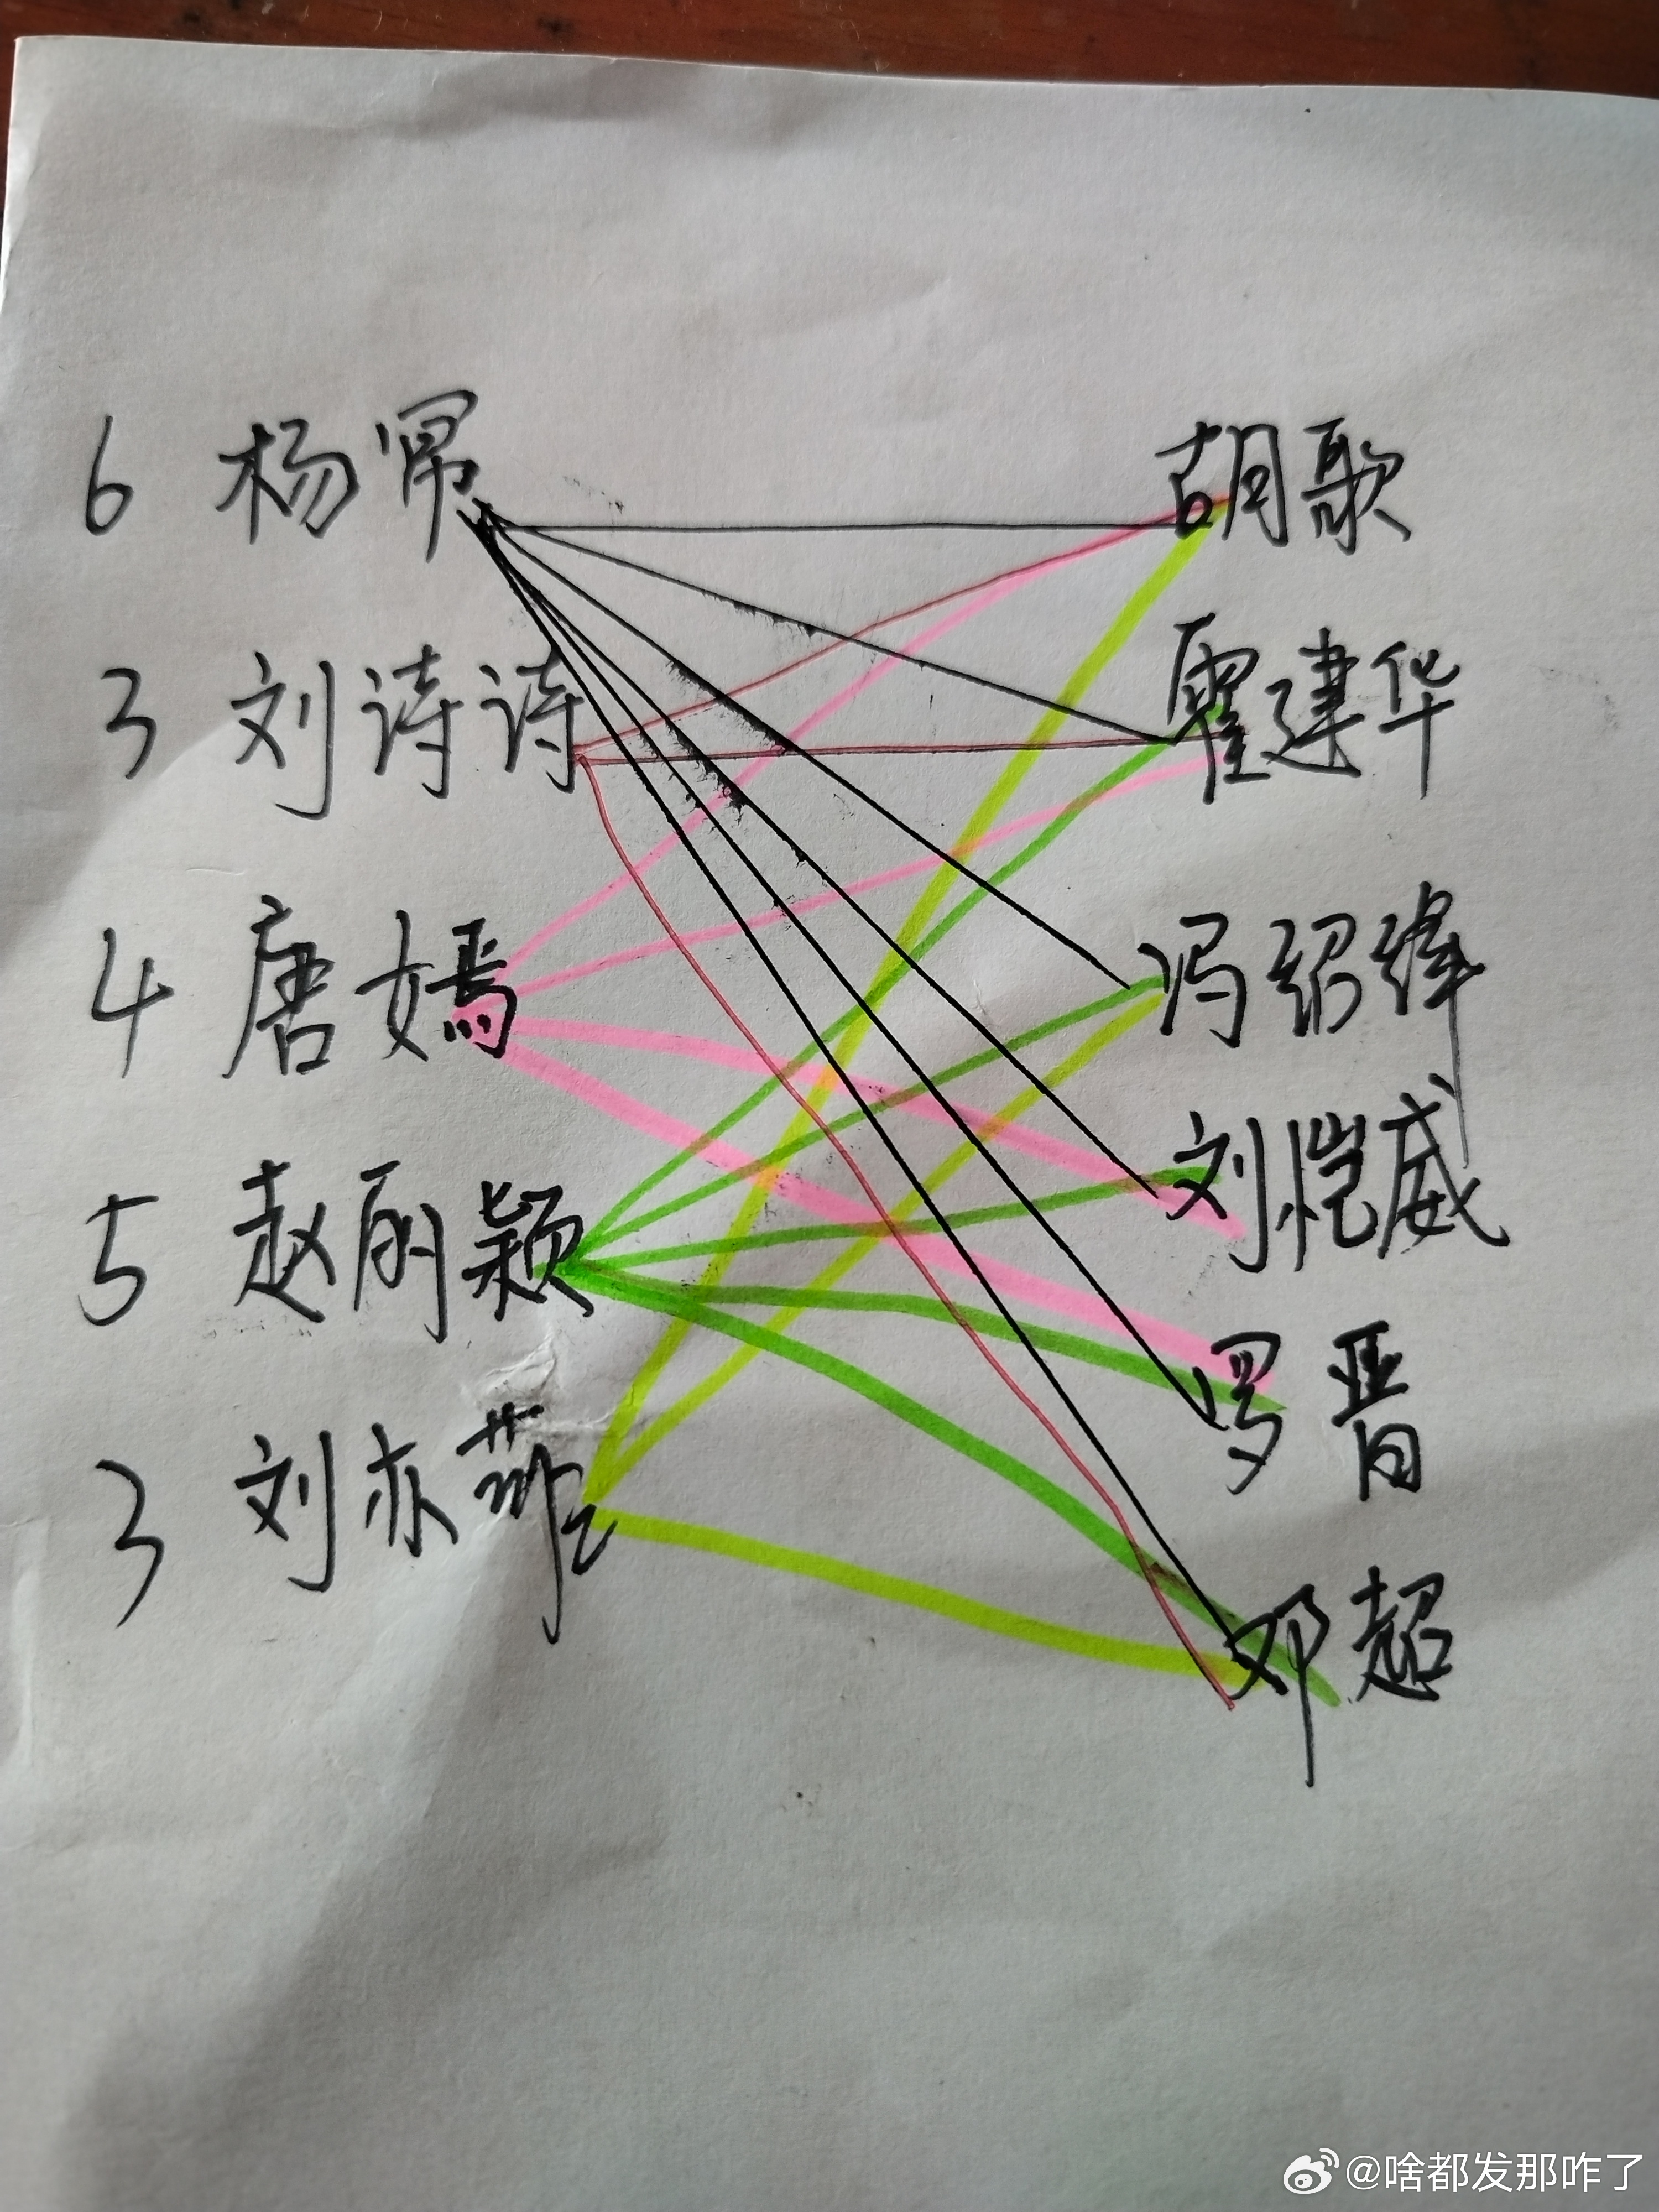 6 杨幂 胡歌
3 刘诗诗 霍建华
4 唐嫣 冯绍峰
5 赵丽颖 刘恺威
3 刘亦菲 罗晋
邓超
@啥都发那咋了